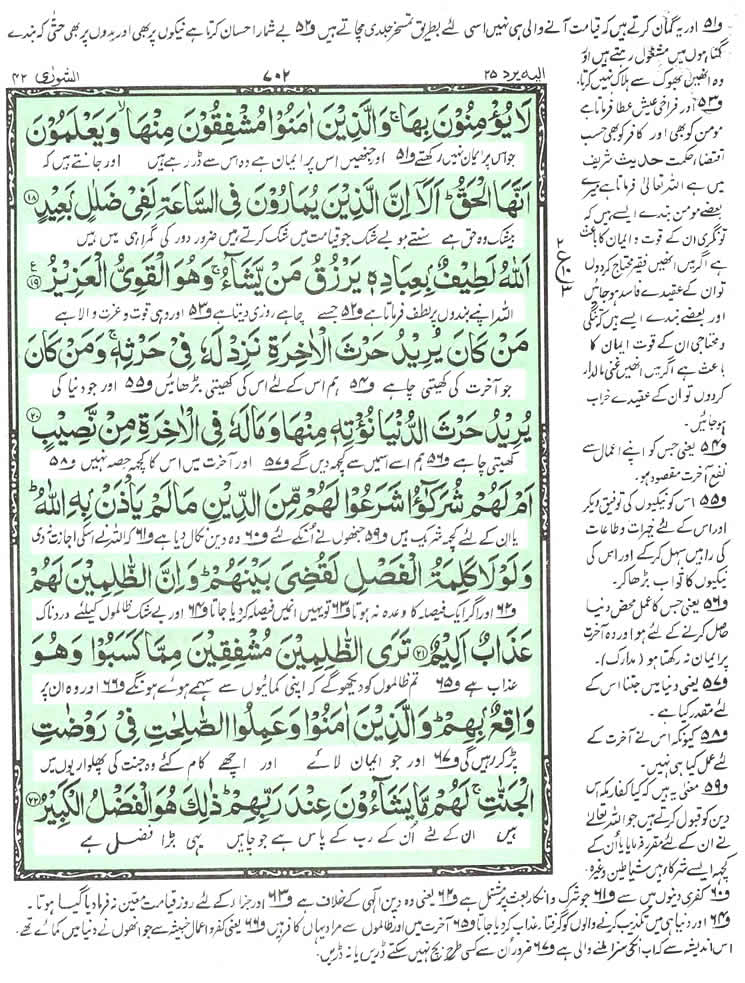 و۵۱ اور یہ گمان کرتے ہیں کہ قیامت آنے والی ہی نہیں اسی لئے بطریق تمسخر جلدی مچاتے ہیں و۵۲ بے شمار احسان کرتا ہے نیکوں پر بھی اور بدوں پر بھی حتّٰی کہ بندے
گناہوں میں مشغول رہتے ہیں اور
وہ انھیں بھوک سے ہلاک نہیں کرتا
و۵۳ اور فراخی عیش عطا فرماتا ہے
مومن کو بھی اور کافر کو بھی حسب
اقتضاء حکمت حدیث شریف
میں ہے اللہ تعالیٰ فرماتا ہے میرے
بعضے مومن بندے ایسے ہیں کہ
تونگری ان کے قوت و ایمان کا باعث
ہے اگر میں انھیں فقیر محتاج کردوں
تو ان کے عقیدے فاسد ہو جائیں
اور بعضے بندے ایسے ہیں کہ تنگی
و محتاجی ان کے قوت ایمان کا
باعث ہے اگر میں انھیں غنی مالدار
کردوں تو ان کے عقیدے خراب
ہو جائیں۔
و۵۴ یعنی جس کو اپنے اعمال سے
نفع آخرت مقصود ہو۔
و۵۵ اس کو نیکیوں کی توفیق دیکر
اور اس کے لئے خیرات و طاعات
کی راہیں سہل کرکے اور اس کی
نیکیوں کا ثواب بڑھا کر۔
و۵۶ یعنی جس کا عمل محض دنیا
حاصل کرنے کے لئے ہو اور وہ آخرت
پر ایمان نہ رکھتا ہو (مدارک)۔
و۵۷ یعنی دنیا میں جتنا اس کے
لئے مقدر کیا ہے۔
و۵۸ کیونکہ اس نے آخرت کے
لئے عمل کیا ہی نہیں۔
و۵۹ معنی یہ ہیں کہ کیا کفار مکہ اس
دین کو قبول کرتے ہیں جو اللہ تعالےٰ
نے ان کے لئے مقرر فرمایا یا اُن کے
کچھ ایسے شرکاء ہیں شیاطین وغیرہ
الیہ یرد ۲۵
۷۰۲
الشورٰی ۴۲
لَا یُؤْمِنُوْنَ بِهَا ۚ وَالَّذِیْنَ اٰمَنُوْا مُشْفِقُوْنَ مِنْهَا ۙ وَیَعْلَمُوْنَ
جو اس پر ایمان نہیں رکھتے و۵۱ اور جنھیں اس پر ایمان ہے وہ اس سے ڈر رہے ہیں اور جانتے ہیں کہ
اَنَّهَا الْحَقُّ ؕ اَلَاۤ اِنَّ الَّذِیْنَ یُمَارُوْنَ فِی السَّاعَةِ لَفِیْ ضَلٰلٍۭ بَعِیْدٍ ۱۸
بیشک وہ حق ہے سنتے ہو بے شک جو قیامت میں شک کرتے ہیں ضرور دور کی گمراہی میں ہیں
اَللّٰهُ لَطِیْفٌۢ بِعِبَادِهٖ یَرْزُقُ مَنْ یَّشَآءُ ۚ وَهُوَ الْقَوِیُّ الْعَزِیْزُ ۱۹
اللہ اپنے بندوں پر لطف فرماتا ہے و۵۲ جسے چاہے روزی دیتا ہے و۵۳ اور وہی قوت و عزت والا ہے
مَنْ كَانَ یُرِیْدُ حَرْثَ الْاٰخِرَةِ نَزِدْ لَهٗ فِیْ حَرْثِهٖ ۚ وَمَنْ كَانَ
جو آخرت کی کھیتی چاہے و۵۴ ہم اس کے لئے اس کی کھیتی بڑھائیں و۵۵ اور جو دنیا کی
یُرِیْدُ حَرْثَ الدُّنْیَا نُؤْتِهٖ مِنْهَا وَمَالَهٗ فِی الْاٰخِرَةِ مِنْ نَّصِیْبٍ ۲۰
کھیتی چاہے و۵۶ ہم اسے اس میں سے کچھ دیں گے و۵۷ اور آخرت میں اس کا کچھ حصہ نہیں و۵۸
اَمْ لَهُمْ شُرَكٰٓؤُا شَرَعُوْا لَهُمْ مِّنَ الدِّیْنِ مَالَمْ یَاْذَنْۢ بِهِ اللّٰهُ ؕ
یا ان کے لئے کچھ شریک ہیں و۵۹ جنھوں نے اُنکے لئے و۶۰ وہ دین نکال دیا ہے و۶۱ کہ اللہ نے اسکی اجازت نہ دی
وَلَوْ لَا كَلِمَةُ الْفَصْلِ لَقُضِیَ بَیْنَهُمْ ؕ وَاِنَّ الظّٰلِمِیْنَ لَهُمْ
و۶۲ اور اگر ایک فیصلہ کا وعدہ نہ ہوتا و۶۳ تو یہیں انمیں فیصلہ کر دیا جاتا و۶۴ اور بے شک ظالموں کیلئے دردناک
عَذَابٌ اَلِیْمٌ ۲۱ تَرَى الظّٰلِمِیْنَ مُشْفِقِیْنَ مِمَّا كَسَبُوْا وَهُوَ
عذاب ہے و۶۵ تم ظالموں کو دیکھو گے کہ اپنی کمائیوں سے سہمے ہوئے ہونگے و۶۶ اور وہ ان پر
وَاقِعٌۢ بِهِمْ ؕ وَالَّذِیْنَ اٰمَنُوْا وَعَمِلُوا الصّٰلِحٰتِ فِیْ رَوْضٰتِ
پڑ کر رہیں گی و۶۷ اور جو ایمان لائے اور اچھے کام کئے وہ جنت کی پھلواریوں میں
الْجَنّٰتِ ۚ لَهُمْ مَّا یَشَآءُوْنَ عِنْدَ رَبِّهِمْ ؕ ذٰلِكَ هُوَ الْفَضْلُ الْكَبِیْرُ ۲۲
ہیں ان کے لئے اُن کے رب کے پاس ہے جو چاہیں یہی بڑا فضل ہے
و۶۰ کفری دینوں میں سے و۶۱ جو شرک و انکار بعث پر مشتمل ہے و۶۲ یعنی وہ دین الٰہی کے خلاف ہے و۶۳ اور جزاء کے لئے روز قیامت معیّن نہ فرما دیا گیا ہوتا۔
و۶۴ اور دنیا ہی میں تکذیب کرنے والوں کو گرفتار عذاب کر دیا جاتا و۶۵ آخرت میں اور ظالموں سے مراد یہاں کافر ہیں و۶۶ یعنی کفر و اعمال خبیثہ سے جو انھوں نے دنیا میں کمائے تھے۔
اس اندیشہ سے کہ اب انکی سزا ملنے والی ہے و۶۷ ضرور اُن سے کسی طرح بچ نہیں سکتے ڈریں یا نہ ڈریں۔